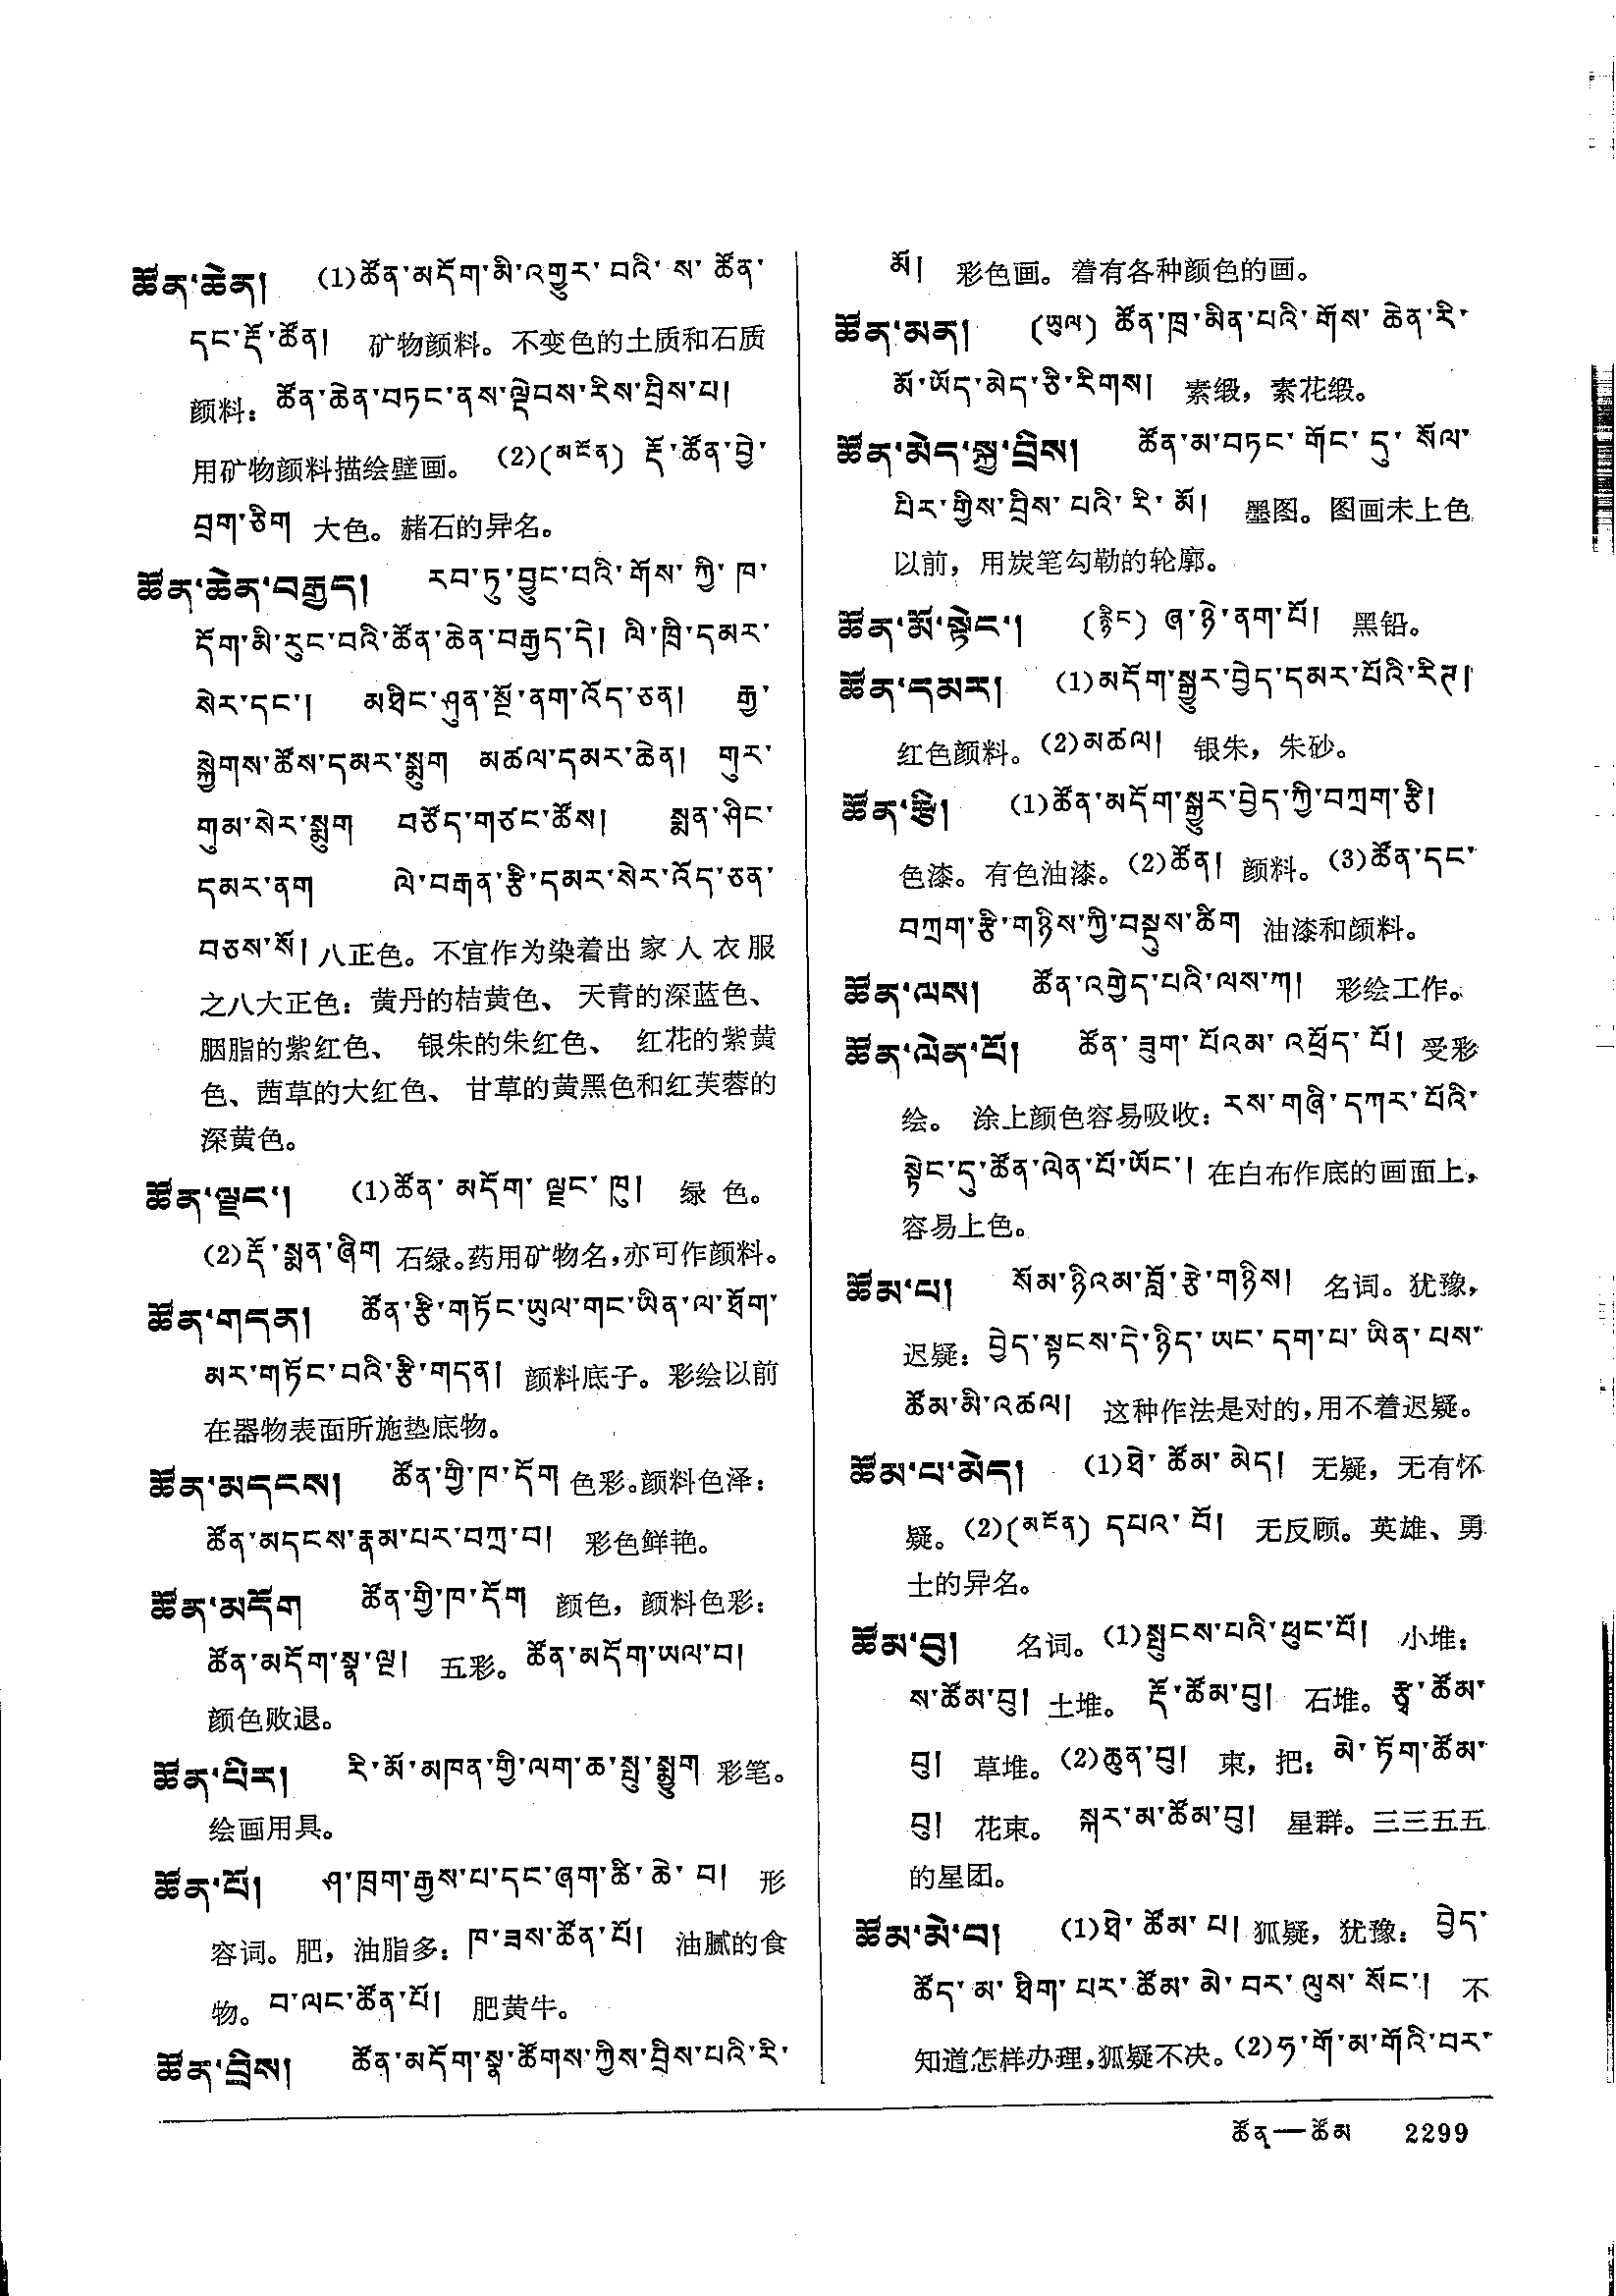 ཚོན་ཆེན། (1)ཚོན་མདོག་མི་འགྱུར་བའི་ས་ཚོན་
དང་རྡོ་ཚོན། 矿物颜料。不变色的土质和石质
颜料: ཚོན་ཆེན་བཏང་ནས་ལྡེབས་རིས་བྲིས་པ།
用矿物颜料描绘壁画。 (2)(མངོན) རྡོ་ཚོན་བྱེ་
བྲག་ཅིག 大色。赭石的异名。
ཚོན་ཆེན་བརྒྱད། རབ་ཏུ་བྱུང་བའི་གོས་ཀྱི་ཁ་
དོག་མི་རུང་བའི་ཚོན་ཆེན་བརྒྱད་དེ། ལི་ཁྲི་དམར་
སེར་དང་། མཐིང་ཤུན་སྔོ་ནག་འོད་ཅན། རྒྱ་
སྐྱེགས་ཚོས་དམར་སྨུག མཚལ་དམར་ཆེན། གུར་
གུམ་སེར་སྨུག བཙོད་གཙང་ཚོས། སྨན་ཤིང་
དམར་ནག ལེ་བརྒན་རྩི་དམར་སེར་འོད་ཅན་
བཅས་སོ། 八正色。不宜作为染着出家人衣服
之八大正色: 黄丹的桔黄色、 天青的深蓝色、
胭脂的紫红色、 银朱的朱红色、 红花的紫黄
色、茜草的大红色、 甘草的黄黑色和红芙蓉的
深黄色。
ཚོན་ལྗང་། (1)ཚོན་མདོག་ལྗང་ཁུ། 绿色。
(2)རྡོ་སྨན་ཞིག 石绿。药用矿物名,亦可作颜料。
ཚོན་གདན། ཚོན་རྩི་གཏོང་ཡུལ་གང་ཡིན་ལ་ཐོག་
མར་གཏོང་བའི་རྩི་གདན། 颜料底子。彩绘以前
在器物表面所施垫底物。
ཚོན་མདངས། ཚོན་གྱི་ཁ་དོག 色彩。颜料色泽:
ཚོན་མདངས་རྣམ་པར་བཀྲ་བ། 彩色鲜艳。
ཚོན་མདོག ཚོན་གྱི་ཁ་དོག 颜色, 颜料色彩:
ཚོན་མདོག་སྣ་ལྔ། 五彩。ཚོན་མདོག་ཡལ་བ།
颜色败退。
ཚོན་པིར། རི་མོ་མཁན་གྱི་ལག་ཆ་སྤུ་སྨྱུག 彩笔。
绘画用具。
ཚོན་པོ། ཤ་ཁྲག་རྒྱས་པ་དང་ཞག་ཚི་ཆེ་བ། 形
容词。肥, 油脂多: ཁ་ཟས་ཚོན་པོ། 油腻的食
物。བ་ལང་ཚོན་པོ། 肥黄牛。
ཚོན་བྲིས། ཚོན་མདོག་སྣ་ཚོགས་ཀྱིས་བྲིས་པའི་རི་
མོ། 彩色画。着有各种颜色的画。
ཚོན་མན། (ཡུལ) ཚོན་ཁྲ་མིན་པའི་གོས་ཆེན་རི་
མོ་ཡོད་མེད་ཅི་རིགས། 素缎, 素花缎。
ཚོན་མེད་སྐྱ་བྲིས། ཚོན་མ་བཏང་གོང་དུ་སོལ་
པིར་གྱིས་བྲིས་པའི་རི་མོ། 墨图。图画未上色
以前, 用炭笔勾勒的轮廓。
ཚོན་མོ་སྟེང་། (རྙིང) ཞ་ཉེ་ནག་པོ། 黑铅。
ཚོན་དམར། (1)མདོག་སྒྱུར་བྱེད་དམར་པོའི་རིཊ།
红色颜料。(2)མཚལ། 银朱, 朱砂。
ཚོན་རྩི། (1)ཚོན་མདོག་སྒྱུར་བྱེད་ཀྱི་བཀྲག་རྩི།
色漆。有色油漆。(2)ཚོན། 颜料。(3)ཚོན་དང་
བཀྲག་རྩི་གཉིས་ཀྱི་བསྡུས་ཚིག 油漆和颜料。
ཚོན་ལས། ཚོན་འགྱེད་པའི་ལས་ཀ། 彩绘工作。
ཚོན་ལེན་པོ། ཚོན་ཟུག་པོའམ་འཕྲོད་པོ། 受彩
绘。 涂上颜色容易吸收: རས་གཞི་དཀར་པོའི་
སྟེང་དུ་ཚོན་ལེན་པོ་ཡོང་། 在白布作底的画面上,
容易上色。
ཚོམ་པ། སོམ་ཉིའམ་བློ་རྩེ་གཉིས། 名词。犹豫,
迟疑: བྱེད་སྟངས་དེ་ཉིད་ཡང་དག་པ་ཡིན་པས་
ཚོམ་མི་འཚལ། 这种作法是对的,用不着迟疑。
ཚོམ་པ་མེད། (1)ཐེ་ཚོམ་མེད། 无疑, 无有怀
疑。(2)(མངོན) དཔའ་པོ། 无反顾。英雄、勇
士的异名。
ཚོམ་བུ། 名词。(1)སྤུངས་པའི་ཕུང་པོ། 小堆:
ས་ཚོམ་བུ། 土堆。 རྡོ་ཚོམ་བུ། 石堆。 རྩྭ་ཚོམ་
བུ། 草堆。(2)ཆུན་བུ། 束, 把: མེ་ཏོག་ཚོམ་
བུ། 花束。 སྐར་མ་ཚོམ་བུ། 星群。三三五五
的星团。
ཚོམ་མེ་བ། (1)ཐེ་ཚོམ་པ། 狐疑, 犹豫: བྱེད་
ཚོད་མ་ཐིག་པར་ཚོམ་མེ་བར་ལུས་སོང་། 不
知道怎样办理,狐疑不决。(2)ཧ་གོ་མ་གོའི་བར་
ཚོན—ཚོམ 2299